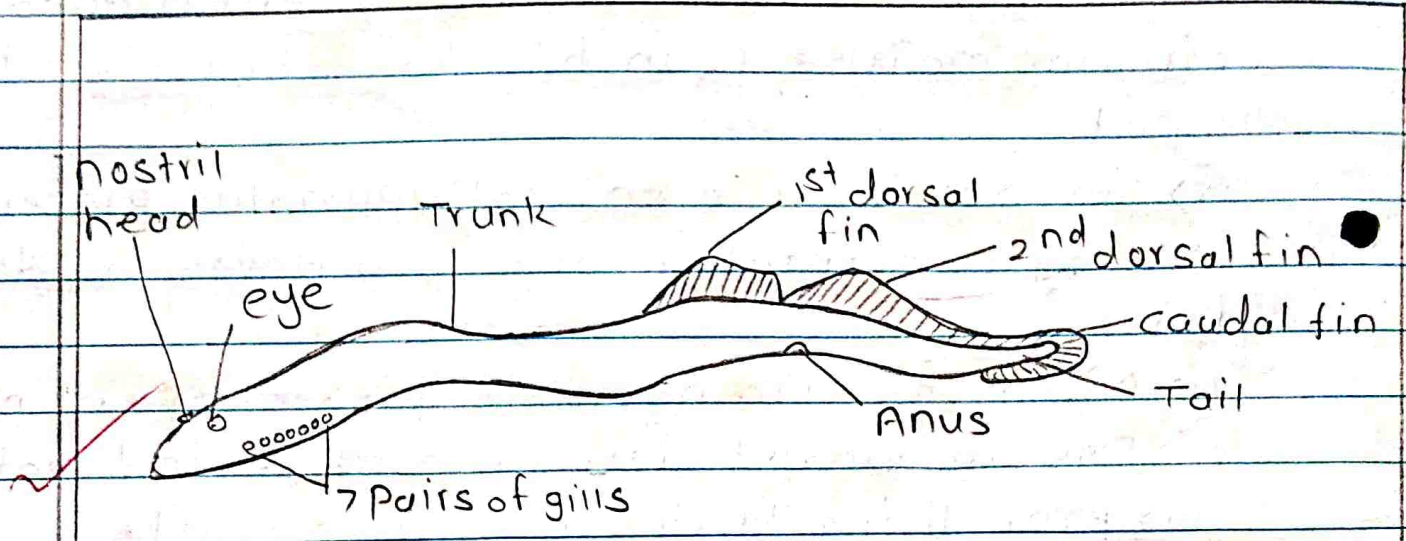 nostril
head
Trunk
1st dorsal
fin
2nd dorsal fin
eye
caudal fin
Tail
Anus
7 Pairs of gills